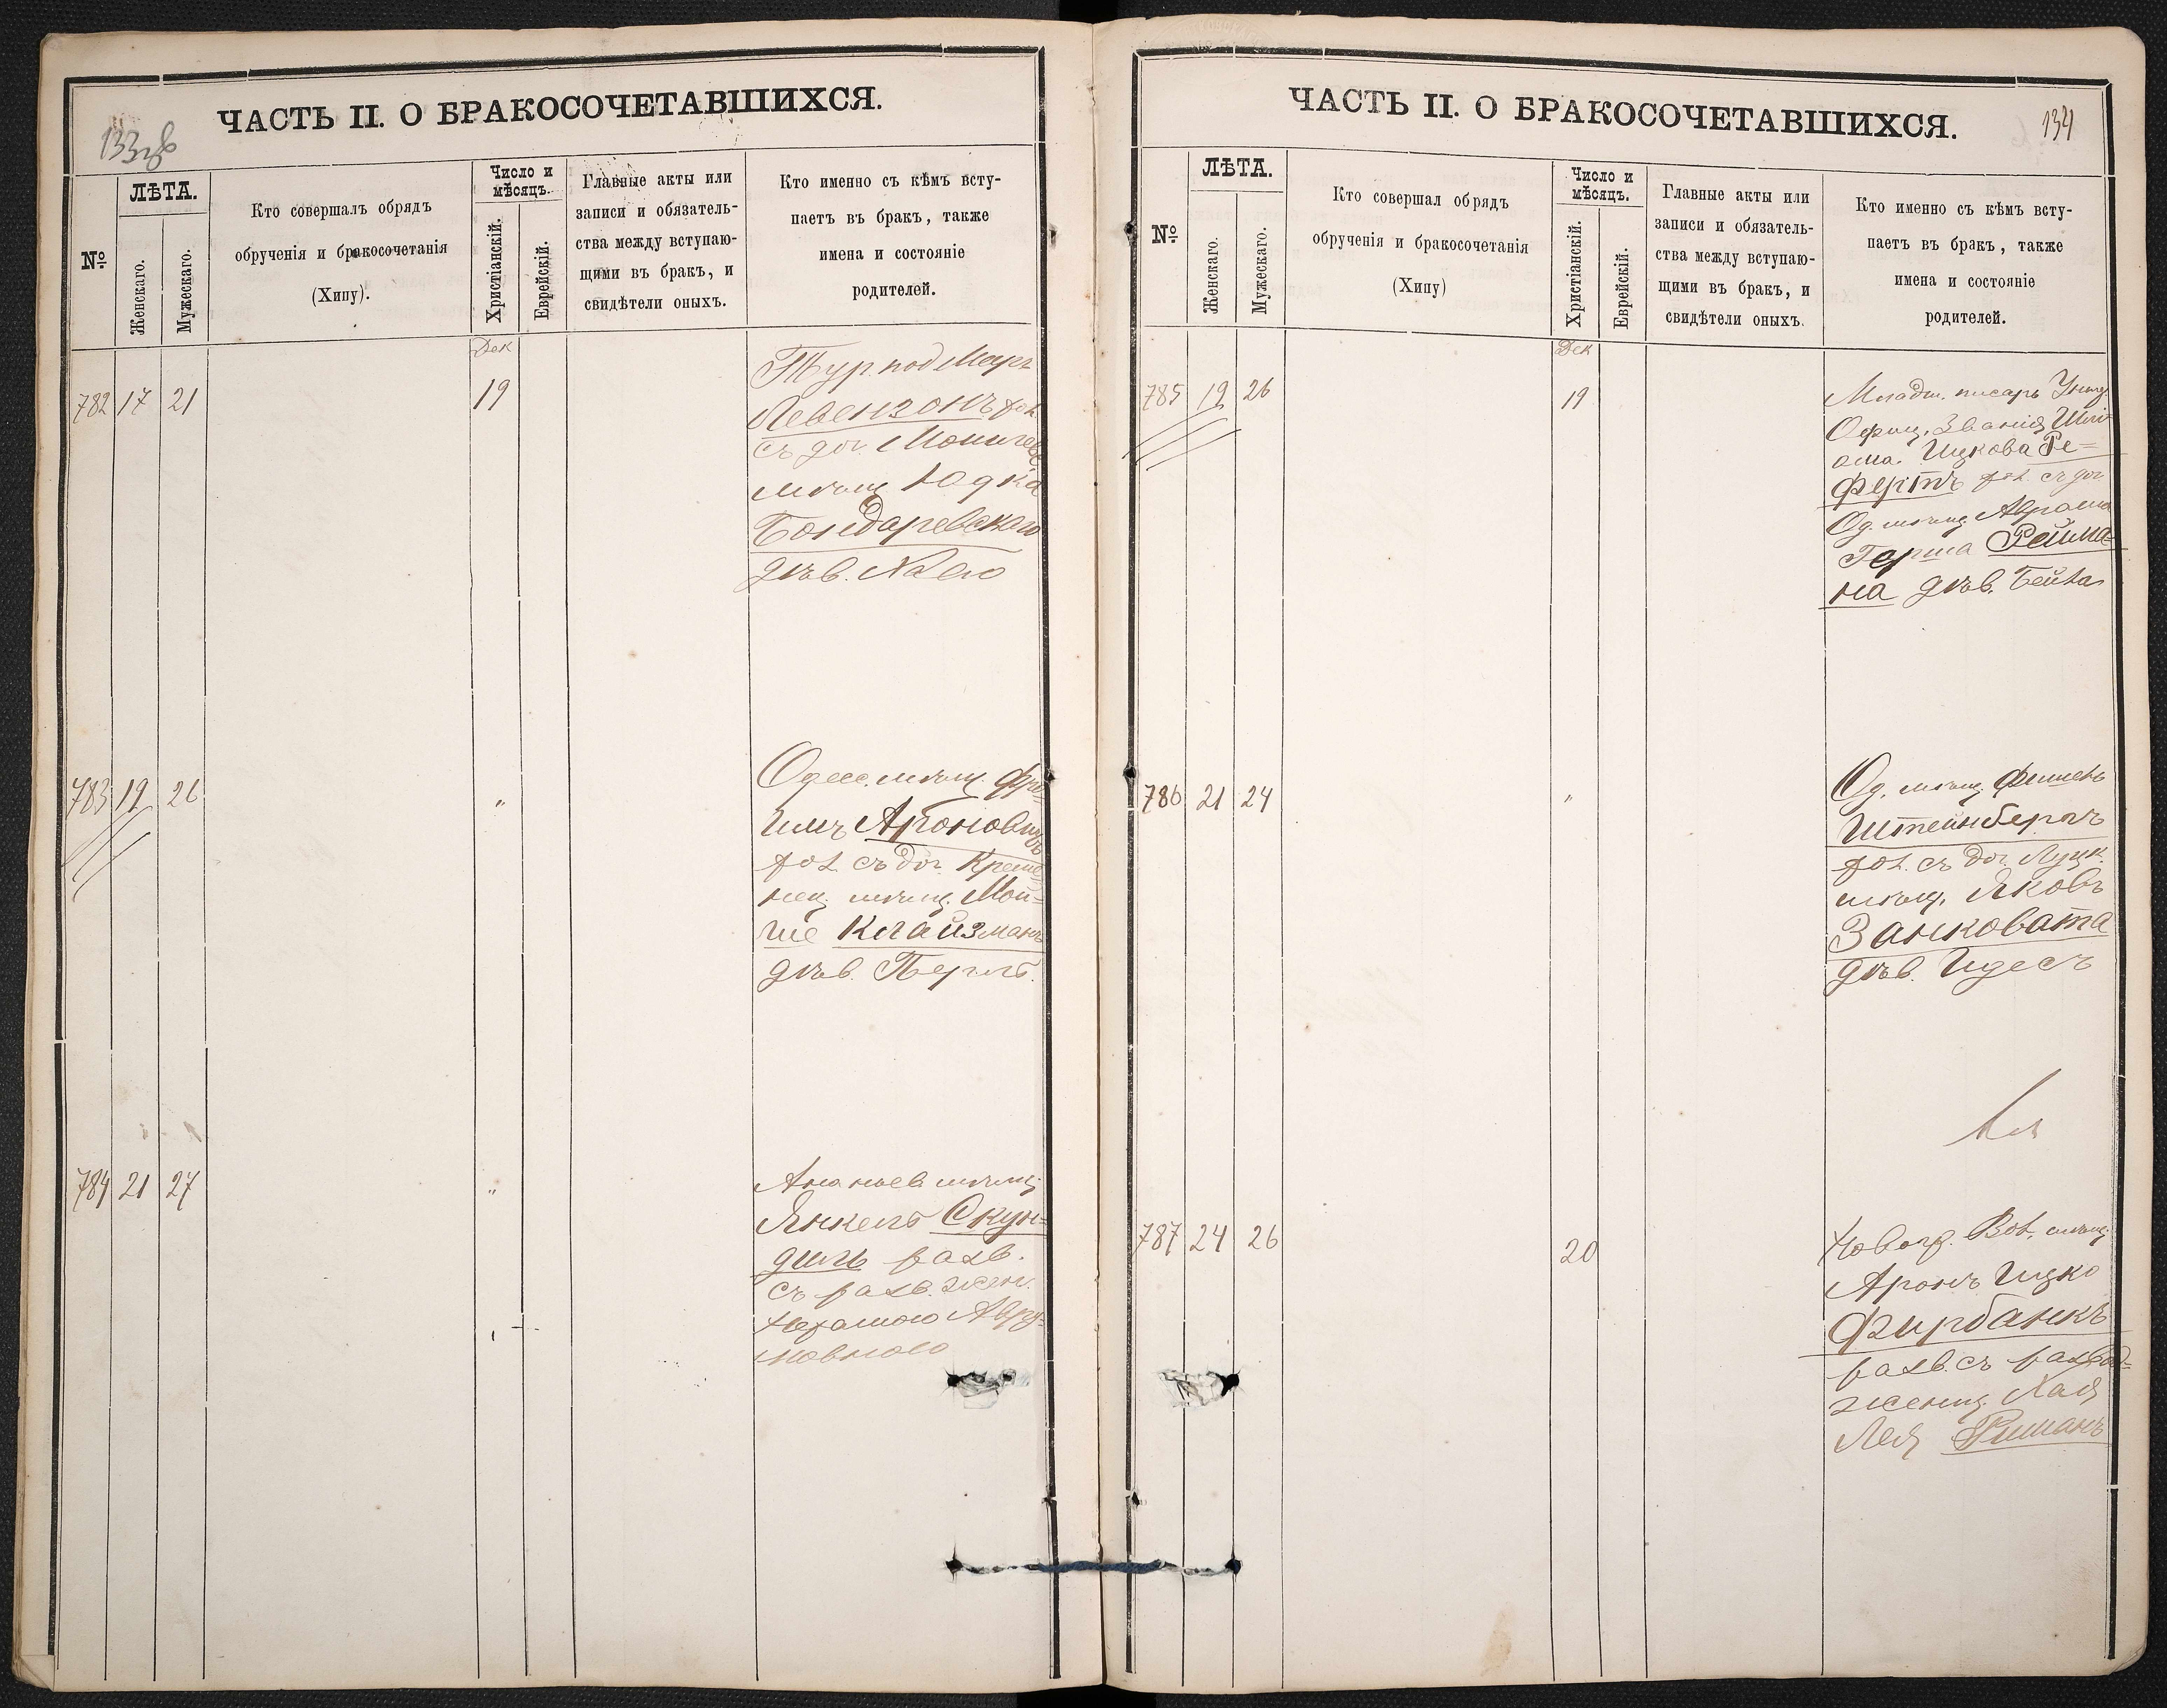 ЧАСТЬ II. О БРАКОСОЧЕТАВШИХСЯ.
133
№
ЛѢТА.
Женскаго.
Мужескаго.
Кто совершалъ обрядъ
обрученія и бракосочетанія
(Хипу).
Число и
мѣсяцъ.
Христіанскій.
Еврейскій.
Главные акты или
записи и обязатель-
ства между вступаю-
щими въ бракъ, и
свидѣтели оныхъ.
Кто именно съ кѣмъ всту-
паетъ въ бракъ, также
имена и состояніе
родителей.
Дек
782 17 21
19
под
Левензонъ хол.
съ доч.
мѣщ Юдка
Бондаревскаго
дѣв.
783 19 26
"
Одесс. мѣщ. Фро-
имъ Ароновичъ
хол. съ доч. Креме-
нец. мѣщ. Мой-
ше Клайзманъ
дѣв. Перль.
784 21 27
"
Ананьев мѣщ
Янкель Скун-
диль разв.
съ разв. жен.
Нехамою Авру-
мовною
ЧАСТЬ II. О БРАКОСОЧЕТАВШИХСЯ.
134
№
ЛѢТА.
Женскаго.
Мужескаго.
Кто совершал обрядъ
обрученія и бракосочетанія
(Хипу)
Число и
мѣсяцъ.
Христіанскій.
Еврейскій.
Главные акты или
записи и обязатель-
ства между вступаю-
щими въ бракъ, и
свидѣтели оныхъ.
Кто именно съ кѣмъ всту-
паетъ въ бракъ, также
имена и состояніе
родителей.
Дек
785 19 26
19
Младш. писарь Унтер.
Офиц. Званія Шлі-
ома. Ицкова Ре-
фертъ хол. съ доч
Од. мѣщ. Абрама
Герша Рейма-
на дѣв. Бейла
786 21 24
"
Од. мѣщ. Фишель
Штейнбергъ
хол. съ доч. Луцк.
мѣщ. Яковъ
Занковата
дѣв. Идесъ
787 24 26
20
Новогр. Вол. мѣщ
Аронъ Ицко
Фирбанкъ
разв. съ развод-
женщ. Хая
Лея Риманъ